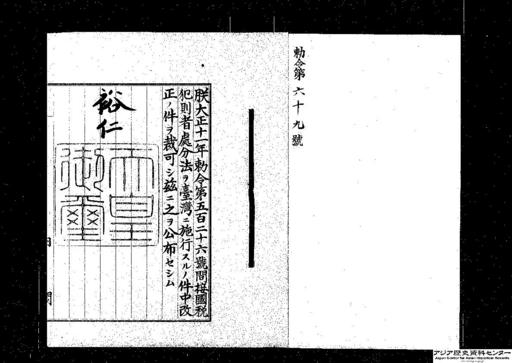 勅令第六十九號
朕大正十一年勅令第五百二十六號間接國税
犯則者處分法ヲ臺灣ニ施行スルノ件中改
正ノ件ヲ裁可シ茲ニ之ヲ公布セシム
裕仁
天皇
御璽
アジア歴史資料センター
Japan Center for Asian Historical Records